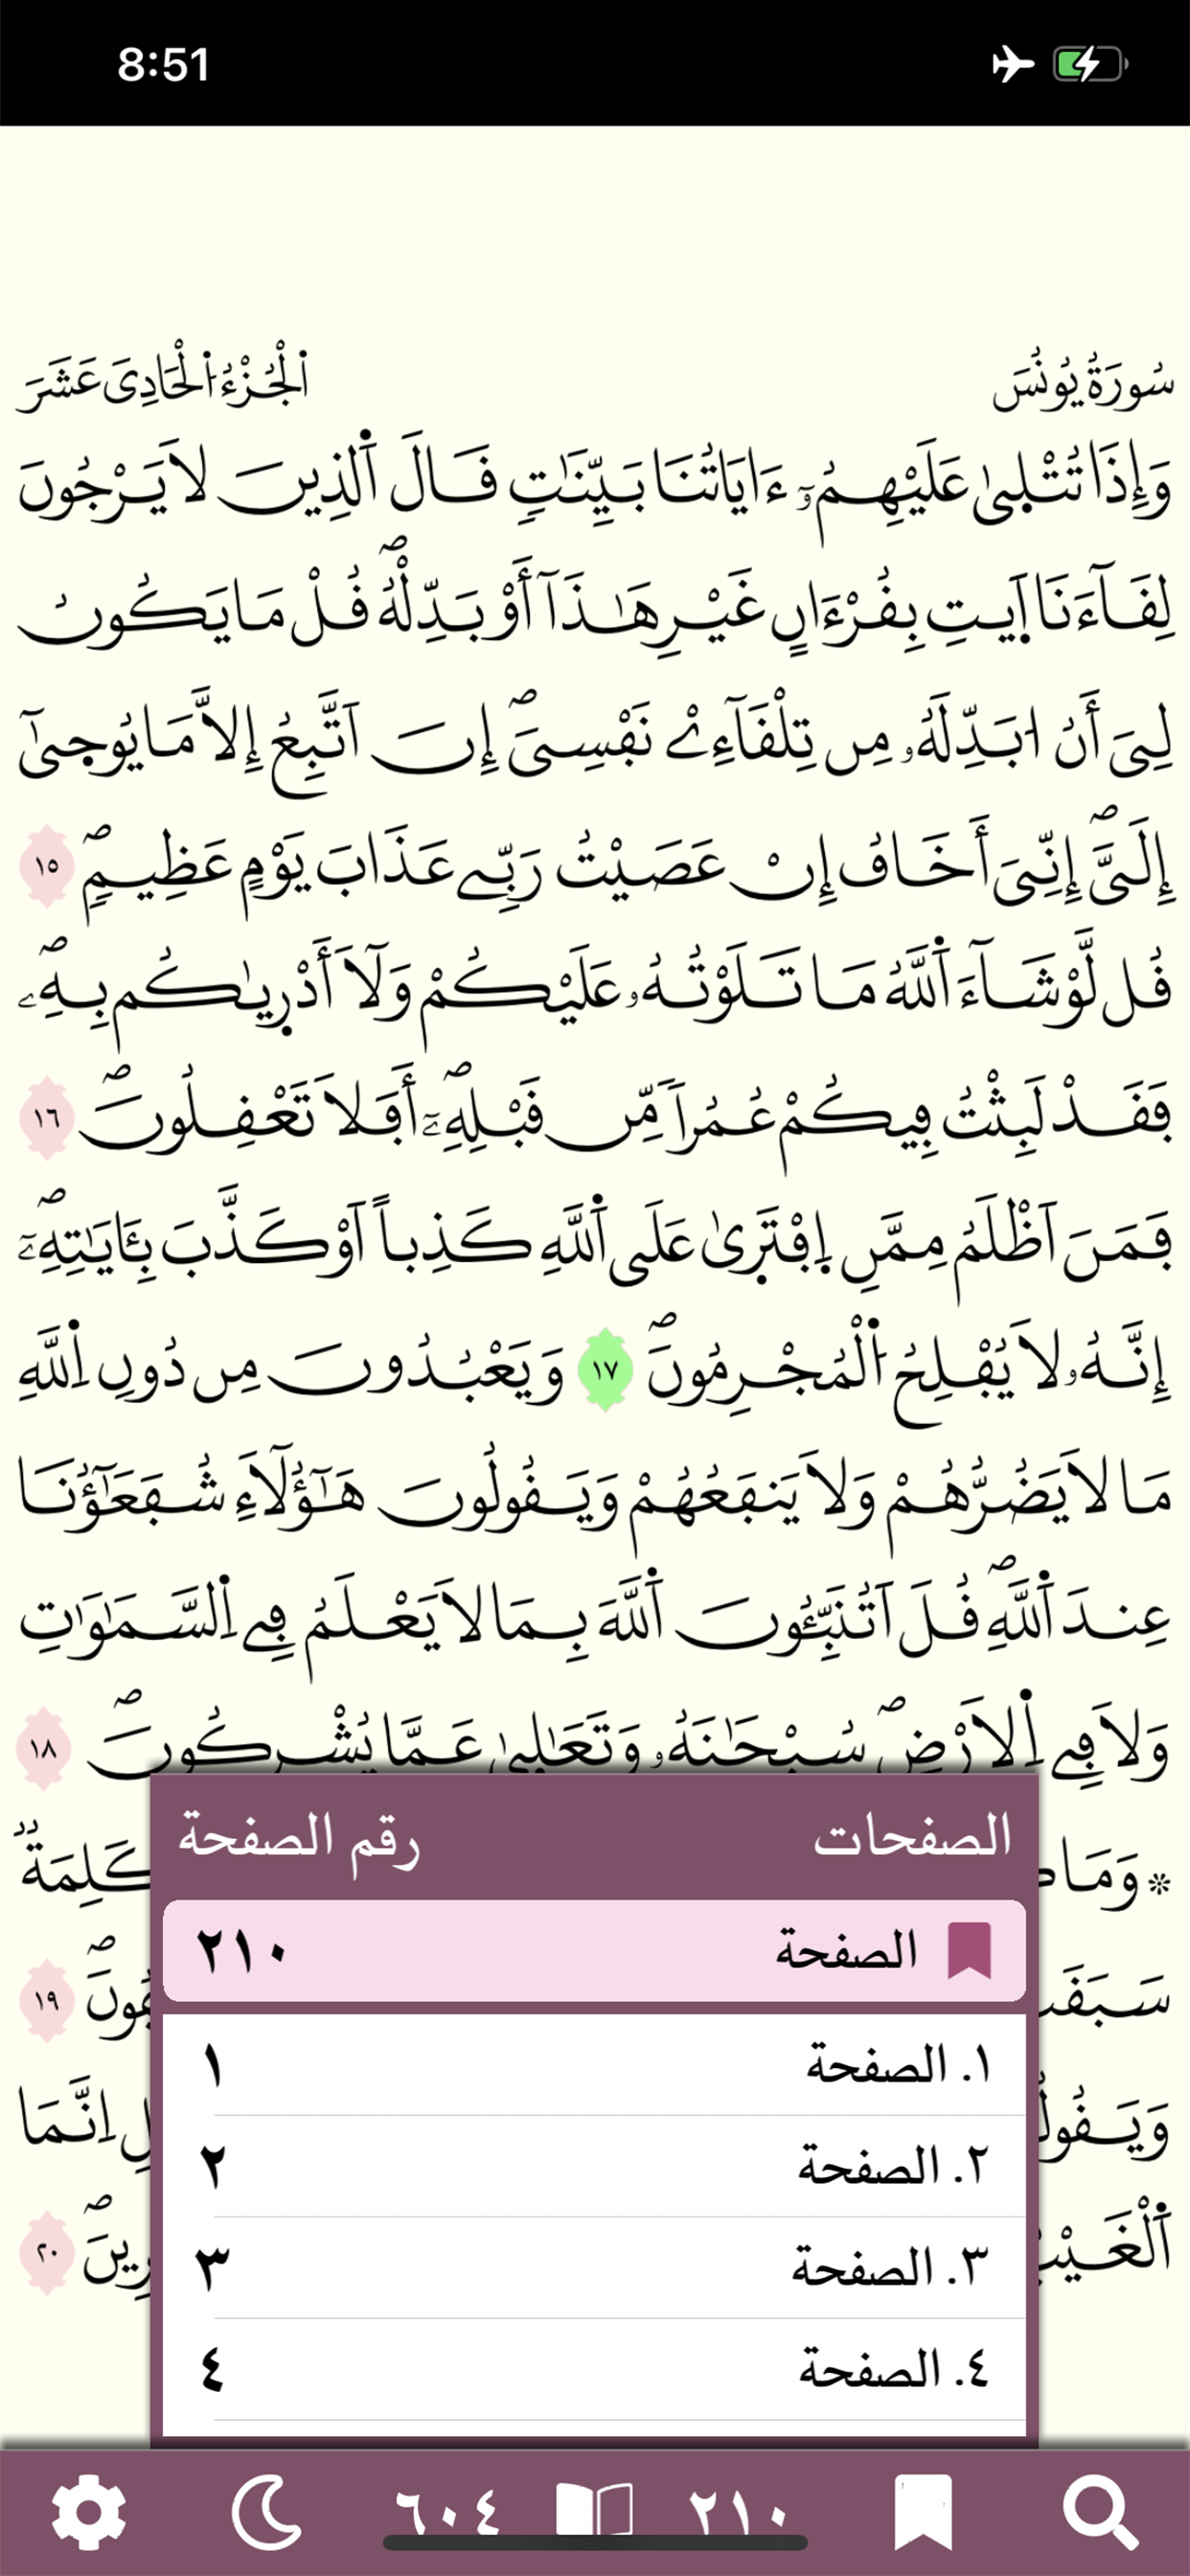 8:51
سُورَةُ يُونُسَ
اَلْجُزْءُ اَلْحَادِيَ عَشَرَ
وَإِذَا تُتْلٜيٰ عَلَيْهِمُۥٓ ءَايَاتُنَا بَيِّنَٰتٖ فَالَ اَ۬لذِينَ لَا يَرْجُونَ
لِفَآءَنَا اَ۪يتِ بِفُرْءَانٍ غَيْرِ هَٰذَآ أَوْ بَدِّلْهُۖ فُلْ مَا يَكُونُ
لِيَ أَنُ ا۟بَدِّلَهُۥ مِن تِلْفَآءِےْ نَفْسِيَۖ إِنَ اَتَّبِعُ إِلَّا مَا يُوح۪يٰٓ
إِلَيَّۖ إِنِّيَ أَخَافُ إِنْ عَصَيْتُ رَبِّے عَذَابَ يَوْمٍ عَظِيمٖۖ ١٥
فُل لَّوْ شَآءَ اَ۬للَّهُ مَا تَلَوْتُهُۥ عَلَيْكُمْ وَلَآ أَدْر۪يٰكُم بِهِۖۦ
فَفَدْ لَبِثْتُ فِيكُمْ عُمُراٗ مِّن فَبْلِهِۖۦٓ أَفَلَا تَعْفِلُونَۖ ١٦
فَمَنَ اَظْلَمُ مِمَّنِ اِ۪فْتَر۪يٰ عَلَي اَ۬للَّهِ كَذِباً اَوْ كَذَّبَ بِـَٔايَٰتِهِۖۦٓ
إِنَّهُۥ لَا يُفْلِحُ اُ۬لْمُجْرِمُونَۖ ١٧ وَيَعْبُدُونَ مِن دُونِ اِ۬للَّهِ
مَا لَا يَضُرُّهُمْ وَلَا يَنفَعُهُمْ وَيَفُولُونَ هَٰٓؤُلَآءِ شُفَعَٰٓؤُنَا
عِندَ اَ۬للَّهِۖ فُلَ اَتُنَبِّـُٔونَ اَ۬للَّهَ بِمَا لَا يَعْلَمُ فِے اِ۬لسَّمَٰوَٰتِ
وَلَا فِے اِ۬لَارْضِۖ سُبْحَٰنَهُۥ وَتَعَٰل۪يٰ عَمَّا يُشْرِكُونَۖ ١٨
۞ وَمَا كَلِمَةٞ
١٩
وَيَفُولُ اِنَّمَا
اَ۬لْغَيْبُ ٢٠
الصفحات رقم الصفحة
الصفحة ٢١٠
١. الصفحة ١
٢. الصفحة ٢
٣. الصفحة ٣
٤. الصفحة ٤
٢١٠ ٦٠٤